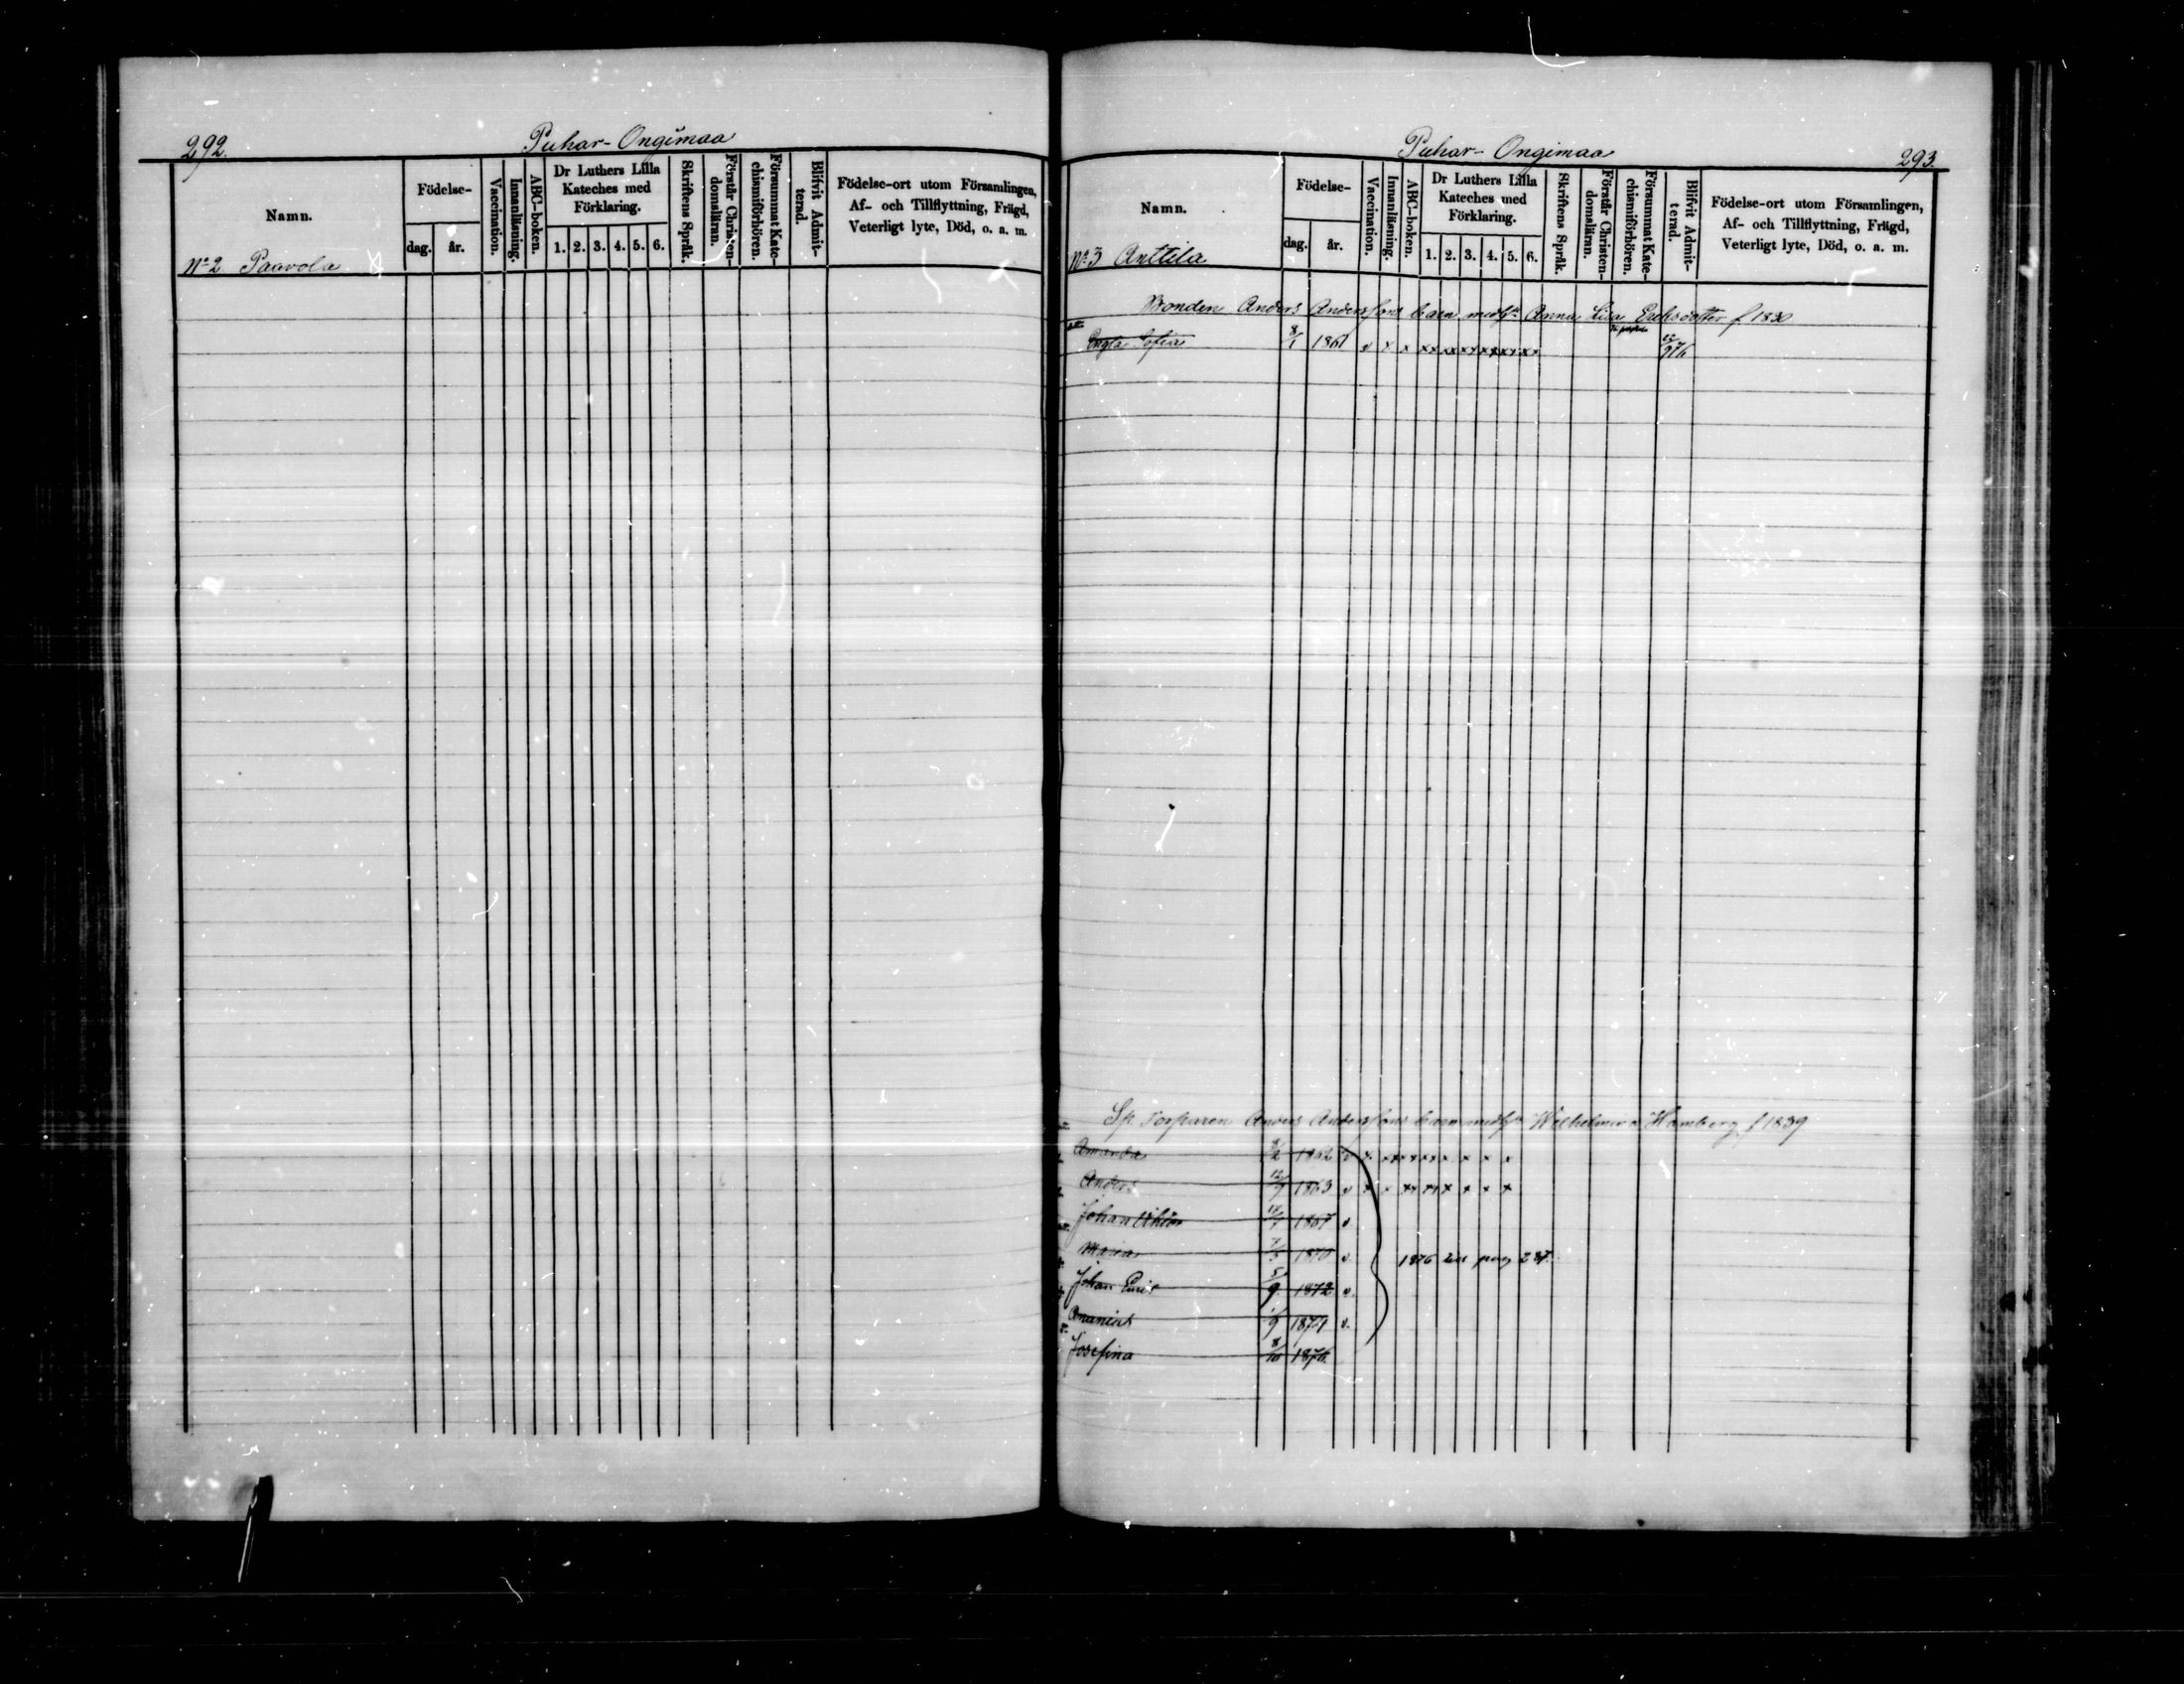 292.
Puhar-Ongimaa
Namn.
Födelse-
dag. år.
Vaccination.
Innanläsning.
ABC-boken.
Dr Luthers Lilla Kateches med Förklaring.
1. 2. 3. 4. 5. 6.
Skriftens Språk.
Förstår Christendomsläran.
Försummat Katechismiförhören.
Blifvit Admitterad.
Födelse-ort utom Församlingen,
Af- och Tillflyttning, Frägd,
Veterligt lyte, Död, o. a. m.
No 2 Paavola
Puhar-Ongimaa
293.
Namn.
Födelse-
dag. år.
Vaccination.
Innanläsning.
ABC-boken.
Dr Luthers Lilla Kateches med Förklaring.
1. 2. 3. 4. 5. 6.
Skriftens Språk.
Förstår Christendomsläran.
Försummat Katechismiförhören.
Blifvit Admitterad.
Födelse-ort utom Församlingen,
Af- och Tillflyttning, Frägd,
Veterligt lyte, Död, o. a. m.
No 3 Anttila
Bonden Anders Anderssons barn med Anna Lisa Eriksdotter f 1830
Sofia 8/1 1861 v x x
Sp. Torparen Anders Anderssons barn med Wilhelmina Hamberg f 1839
Amanda 8/2 1862 v
Anders 12/7 1863 v
Johan Viktor 1867 v
Maria 1870 v 1876 pag 287.
Johan Emil 5/9 1872 v
Ananias 1/9 1874 v.
Josefina 8/10 1876.